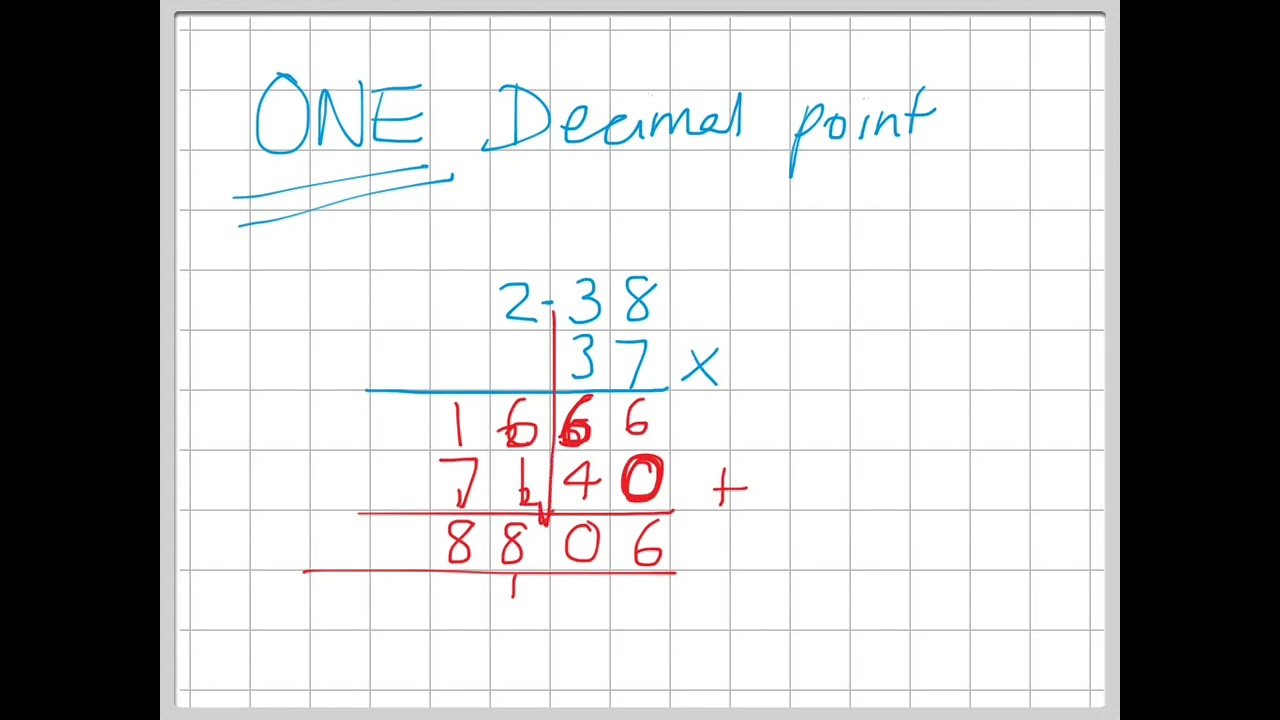 ONE Decimal point
2.38
37 x
1666
7140 +
8806
1